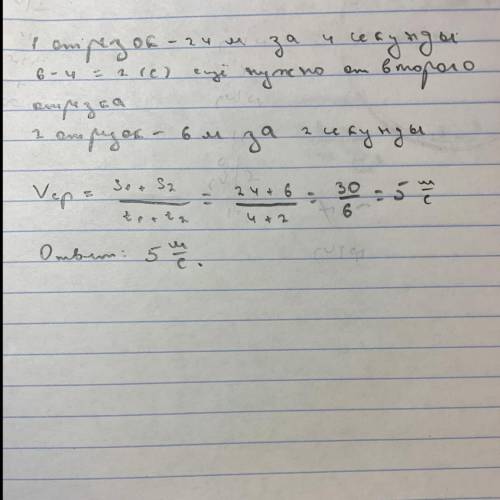 1 отрезок - 24 м за 4 секунды
6 - 4 = 2 (с) ещё нужно от второго
отрезка
2 отрезок - 6 м за 2 секунды
Vср = S₁ + S₂ / t₁ + t₂ = 24 + 6 / 4 + 2 = 30 / 6 = 5 м/с
Ответ: 5 м/с.